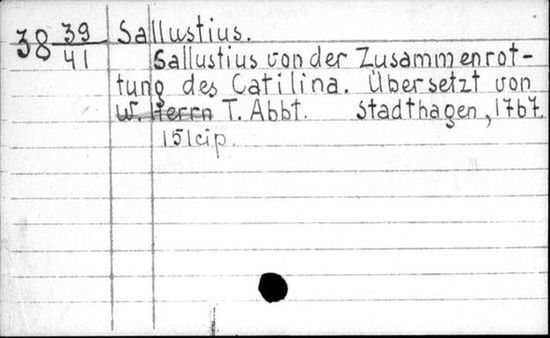 38 39/41 Sallustius.
Sallustius von der Zusammenrot-
tung des Catilina. Übersetzt von
W. Herrn T. Abbt. Stadthagen, 1767.